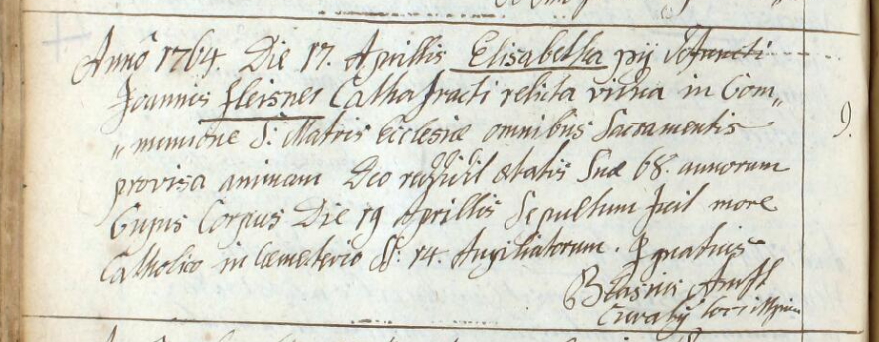 Anno 1764. Die 17. Aprillis Elisabetha pij Defuncti
Joannis Fleisner Cathafracti relicta vidua in Com„
„munione S: Matris Ecclesiæ omnibus Sacramentis
provisa animam Deo reddidit ætatis Suæ 68. annorum
Cujus Corpus Die 19 Aprillis Sepultum fuit more
9.
Catholico in Cæmeterio SS: 14. Auxiliatorum. Ignatius
Blasius
loci